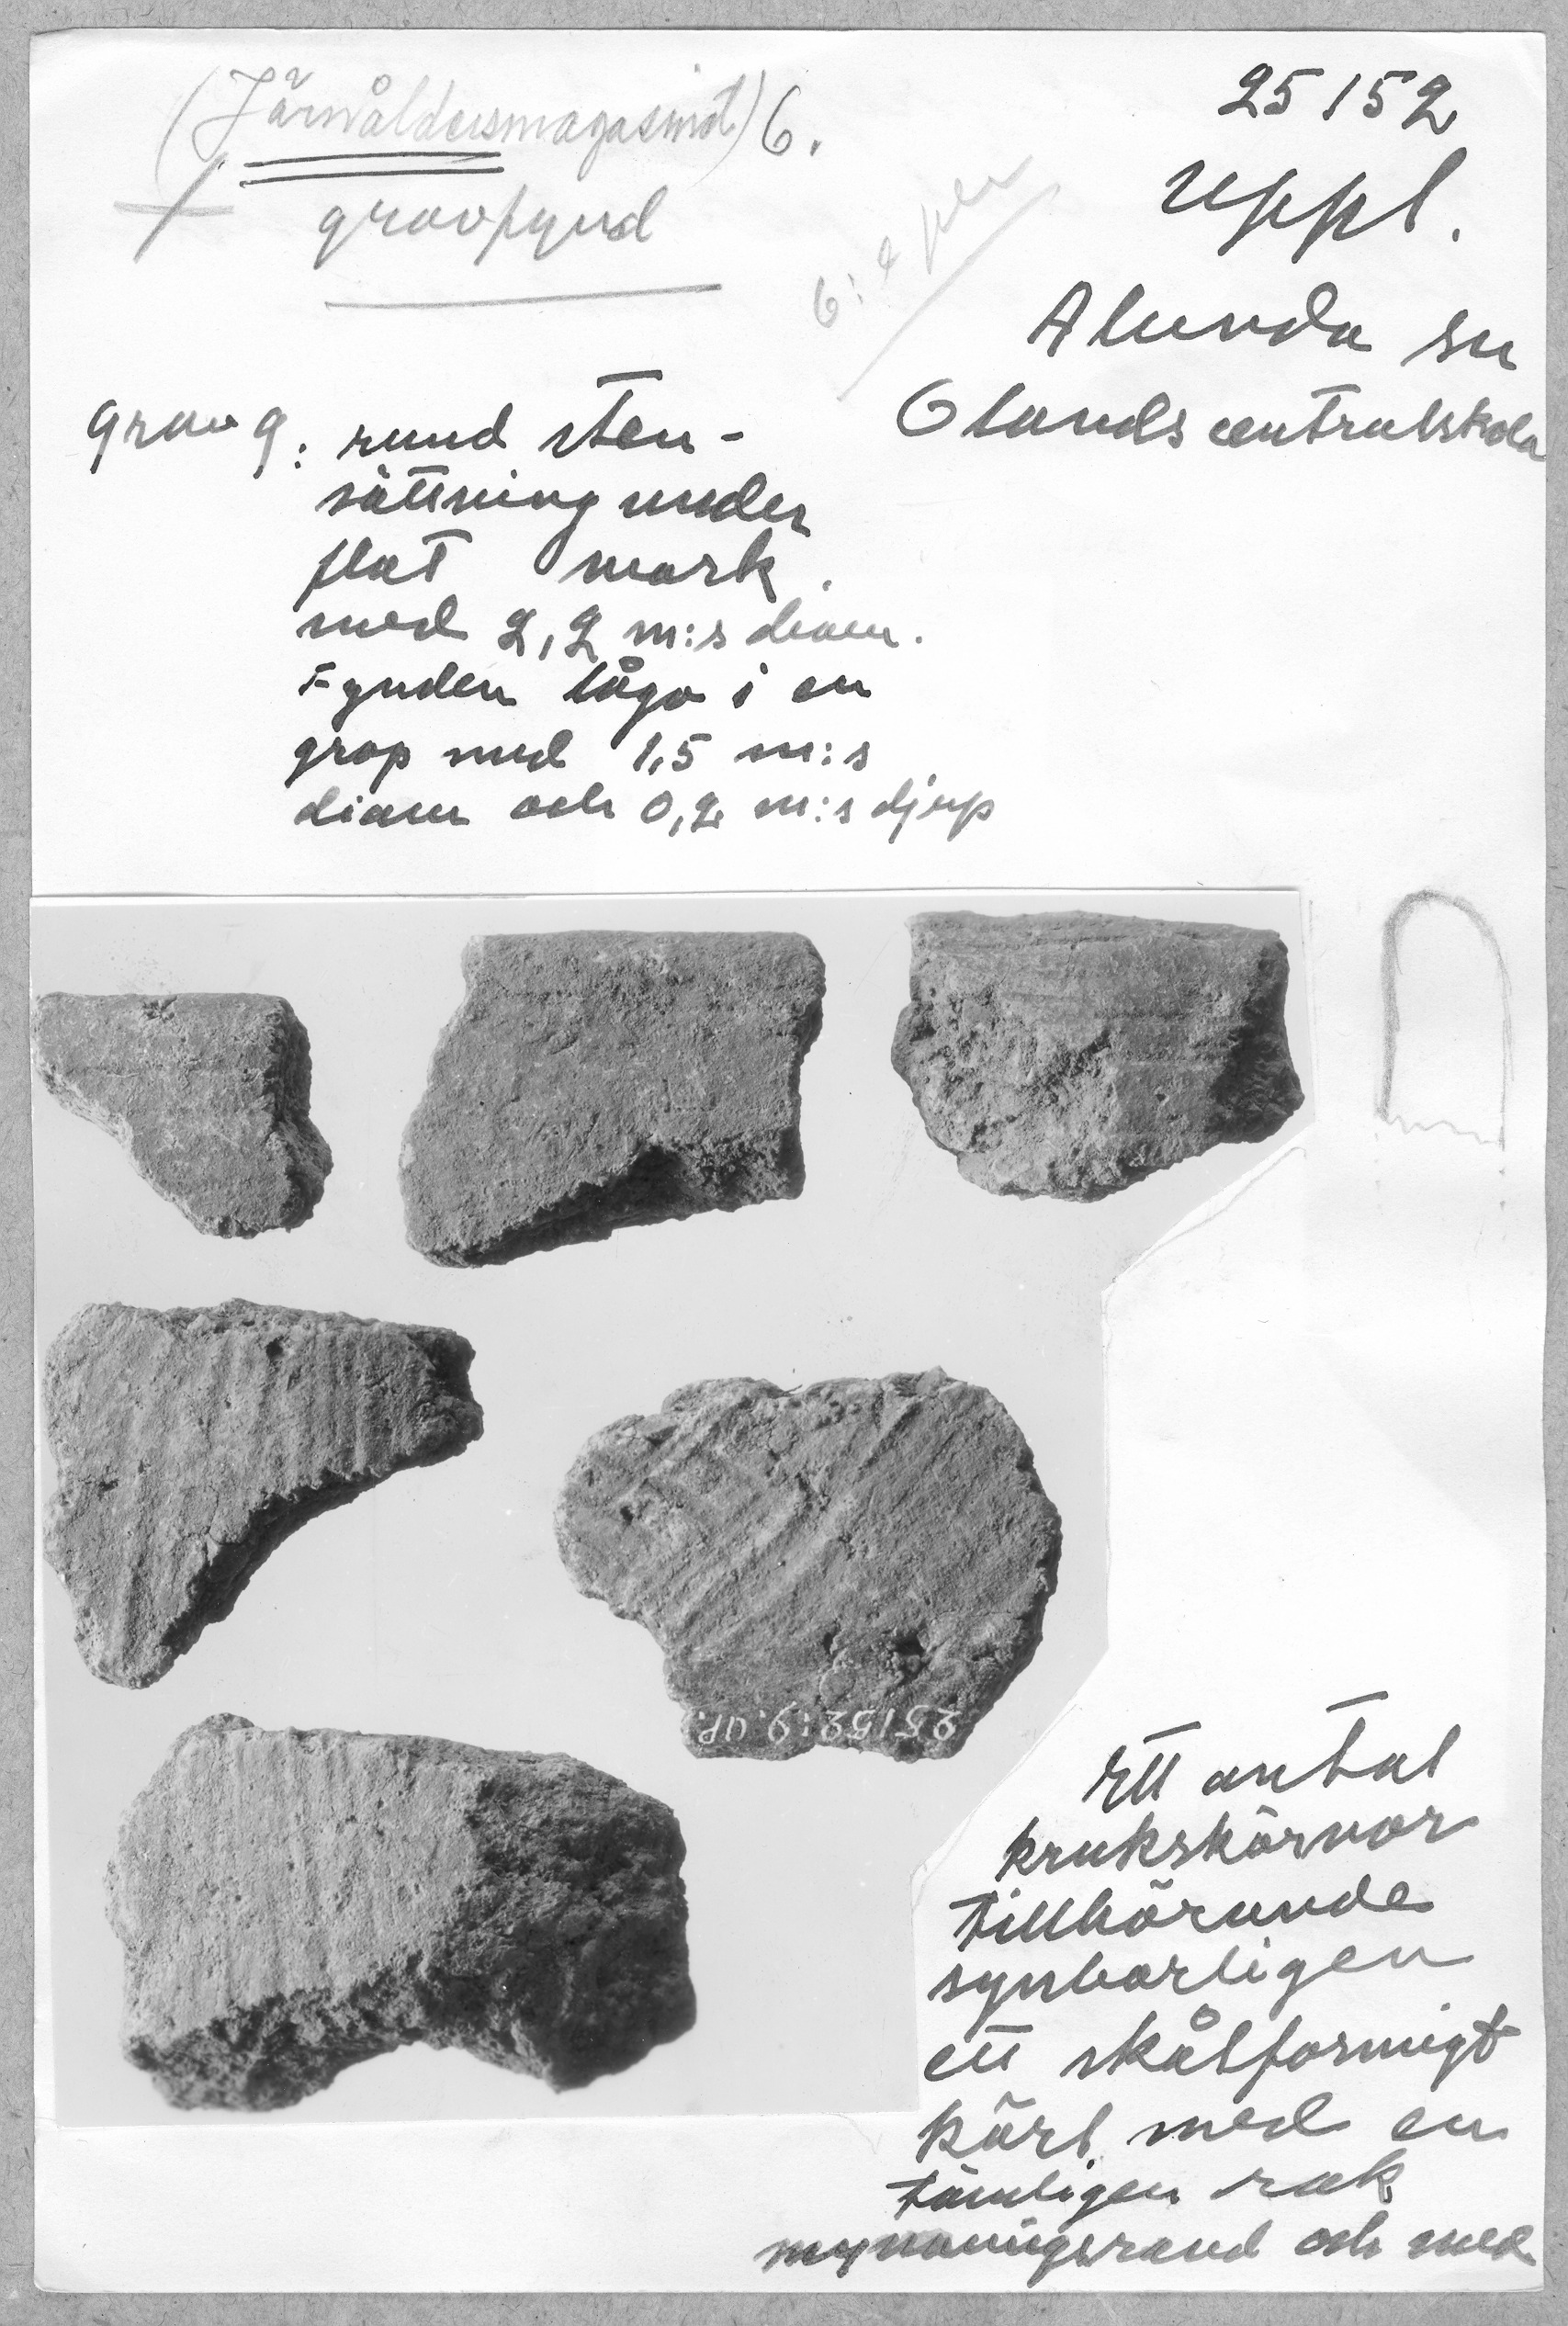 (Järnåldersmagasinet) 6.
gravfynd
25152
Uppl.
Alunda sn
Olands centralskola
grav 9: rund sten-
sättning under
flat mark.
med 2,2 m:s diam.
Fynden lågo i en
grop med 1,5 m:s
diam och 0,2 m:s djup
25152:9.UP.
Ett antal
krukskärvor
tillhörande
synbarligen
ett skålformigt
kärl med en
tämligen rak
mynningsrand och med